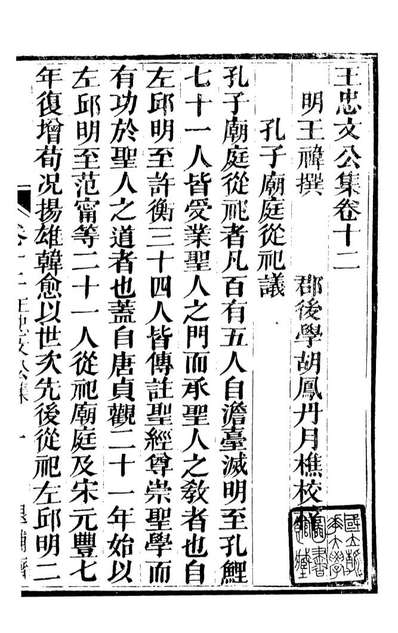 王忠文公集卷十二
明王禕撰　郡後學胡鳳丹月樵校
孔子廟庭從祀議
孔子廟庭從祀者凡百有五人自澹臺滅明至孔鯉
七十一人皆受業聖人之門而承聖人之教者也自
左邱明至許衡三十四人皆傳註聖經尊崇聖學而
有功於聖人之道者也蓋自唐貞觀二十一年始以
左邱明至范甯等二十一人從祀廟庭及宋元豐七
年復增荀况揚雄韓愈以世次先後從祀左邱明二